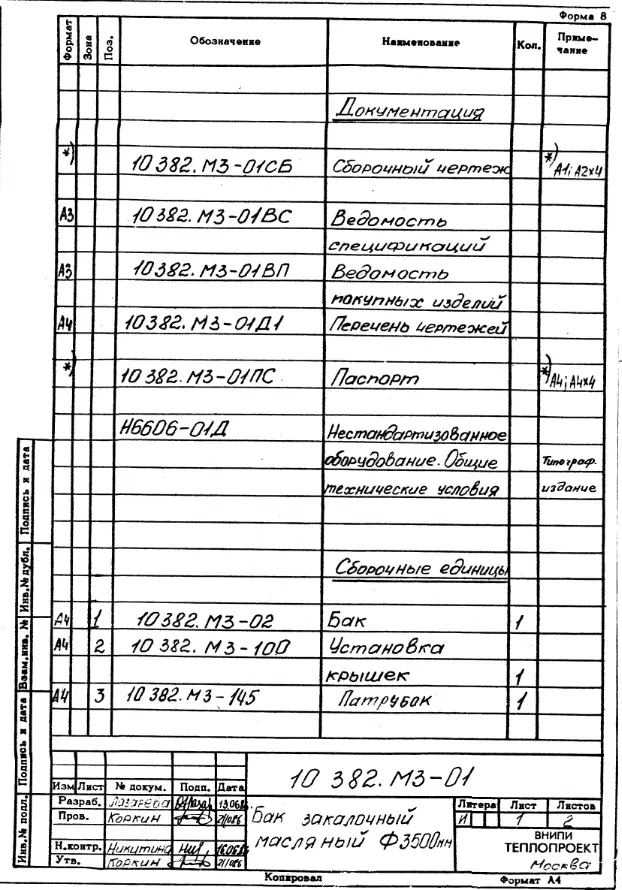 Форма 8
Формат Зона Поз. Обозначение Наименование Кол. Приме-
чание
Документация
*) 10382.МЗ-01СБ Сборочный чертеж *) А1; А2х4
А3 10382.МЗ-01ВС Ведомость
спецификаций
А3 10382.МЗ-01ВП Ведомость
покупных изделий
А4 10382.МЗ-01Д1 Перечень чертежей
*) 10382.МЗ-01ПС Паспорт *) А4; А4х4
Н6606-01Д Нестандартизованное
оборудование. Общие Типограф.
технические условия издание
Сборочные единицы
А4 1 10382.МЗ-02 Бак 1
А4 2 10382.МЗ-100 Установка
крышек 1
А4 3 10382.МЗ-145 Патрубок 1
Инв.№ подл. Подпись и дата Взам.инв. № Инв.№ дубл. Подпись и дата
10 382.МЗ-01
Изм Лист № докум. Подп. Дата
Разраб. Лазарева 13.06.86
Пров. Коркин
Н.контр. Никитина
Утв. Коркин
Бак закалочный
масляный Ф3500мм
Литера Лист Листов
И 1 2
ВНИПИ
ТЕПЛОПРОЕКТ
Москва
Копировал Формат А4